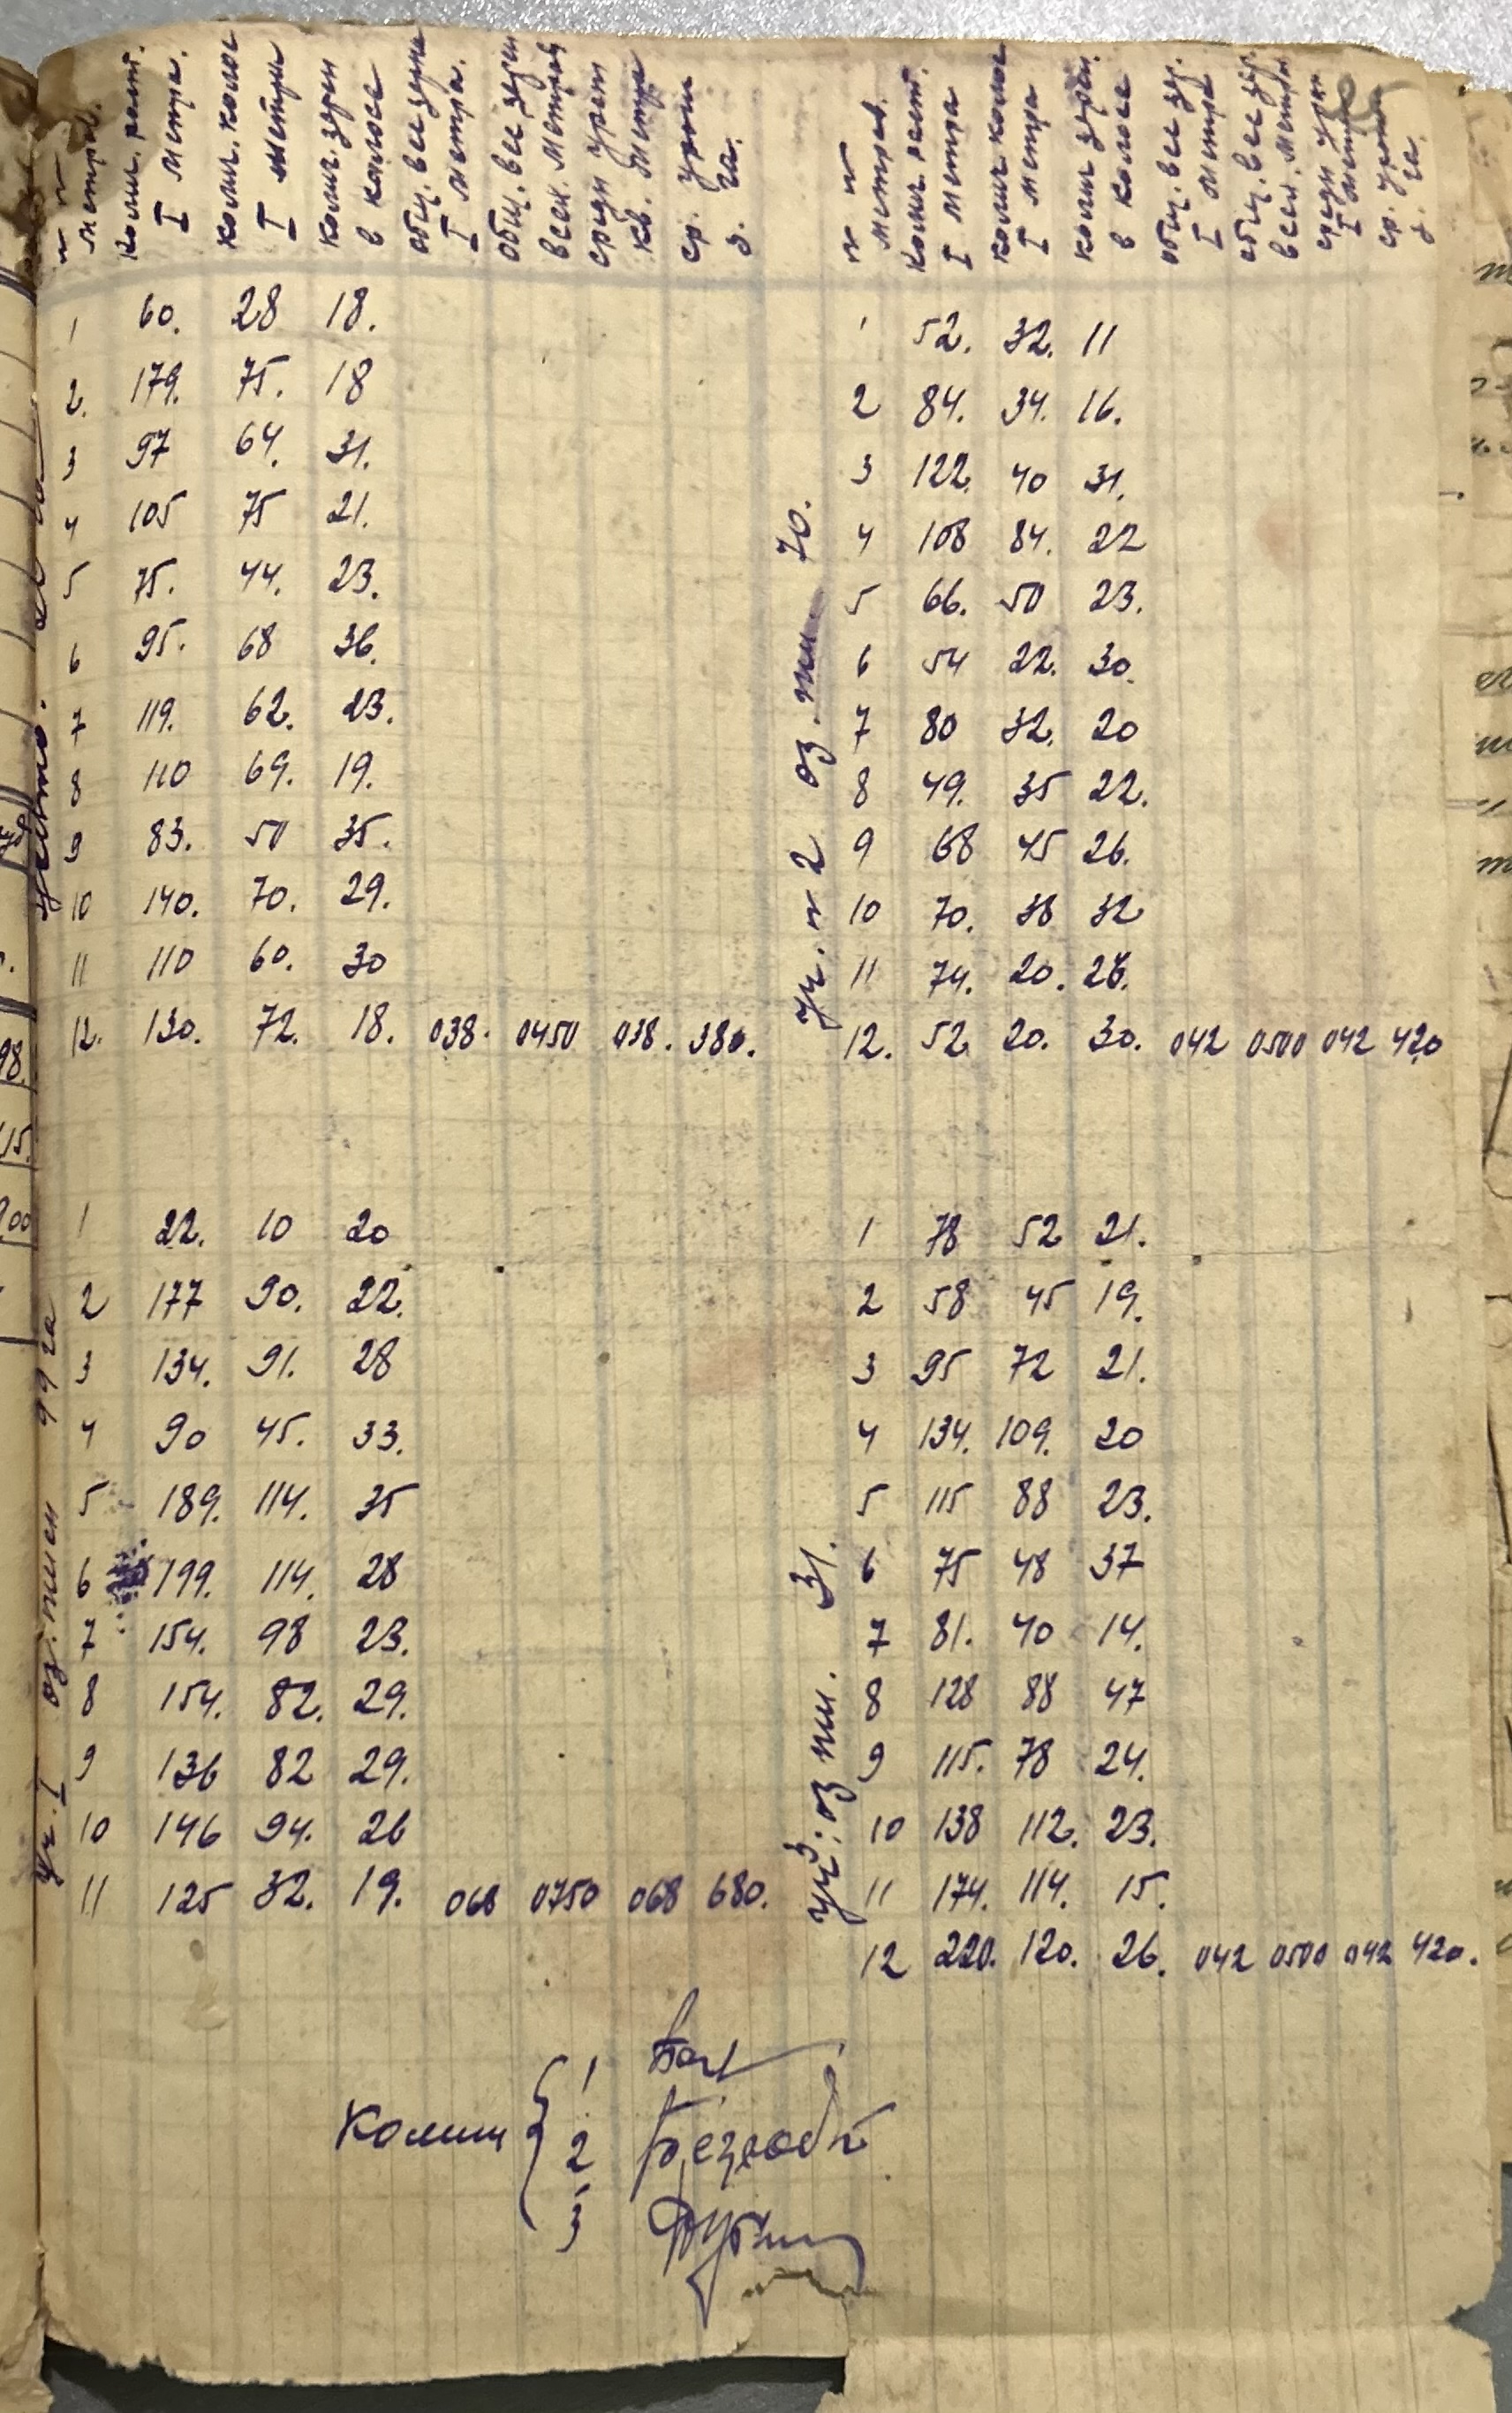 n n метров. колич. раст. I метра. колич. колос I метра колич. зерен в колосе общ. вес зерна I метра. общ. вес зерн всех. метров средн урож кв. метра ср. урож з. га.
1 60. 28 18.
2. 179. 75. 18
3 97 64. 31.
4 105 75 21.
5 75. 44. 23.
6 95. 68 36.
7 119. 62. 23.
8 110 69. 19.
9 83. 50 35.
10 140. 70. 29.
11 110 60. 30
12. 130. 72. 18. 038. 0450 038. 380.
уч. I оз. пшен 99 га
1 22. 10 20
2 177 90. 22.
3 134. 91. 28
4 90 45. 33.
5 189. 114. 35
6 199. 114. 28
7 154. 98 23.
8 154. 82. 29.
9 136 82 29.
10 146 94. 26
11 125 32. 19. 068 0750 068 680.
n n метров. колич. раст. I метра колич колос I метра колич зерен. в колосе общ. вес зер. I метра общ. вес зер. всех. метров средн урож I метра ср. урож з. га.
уч. n 2 оз. пш. 70.
1 52. 32. 11
2 84. 34. 16.
3 122. 40 31.
4 108 84. 22
5 66. 50 23.
6 54 22. 30.
7 80 32. 20
8 49. 35 22.
9 68 45 26.
10 70. 38 32
11 74. 20. 26.
12. 52. 20. 30. 042 0500 042 420
уч 3. оз пш. 31.
1 78 52 21.
2 58 45 19.
3 95 72 21.
4 134. 109. 20
5 115 88 23.
6 75 48 37
7 81. 40 14.
8 128 88 47
9 115. 78 24.
10 138 112. 23.
11 174. 114. 15.
12 220. 120. 26. 042 0500 042 420.
Комис
1
2
3